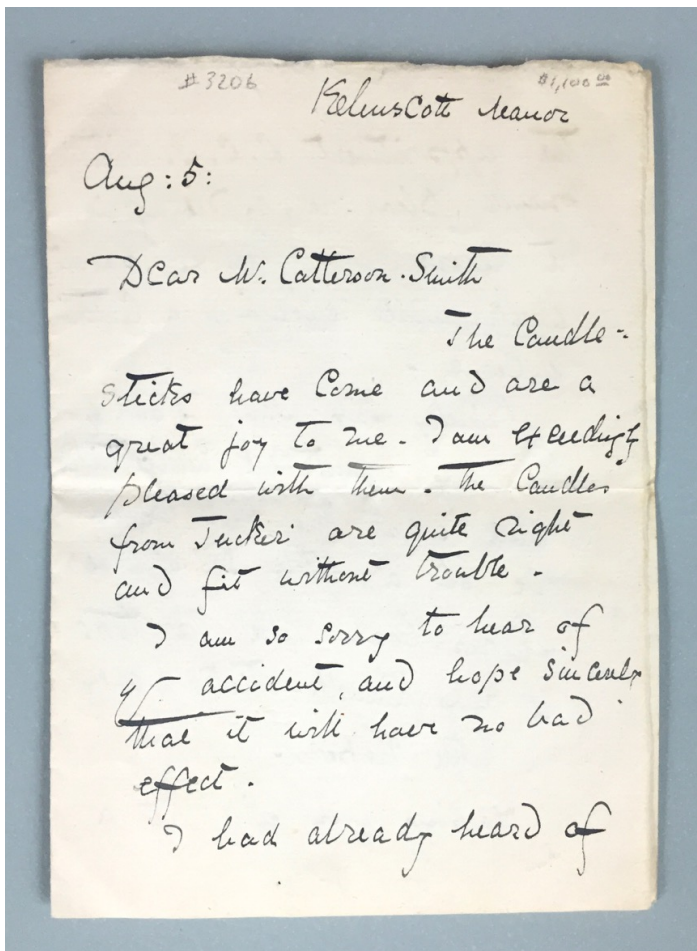 #3206
$1,100.00
Kelmscott Manor
Aug: 5:
Dear Mr. Catterson-Smith
The Candle-
sticks have come and are a
great joy to me. I am exceedingly
pleased with them. The Candles
from Tucker are quite right
and fit without trouble.
I am so sorry to hear of
yr accident, and hope sincerely
that it will have no bad
effect.
I had already heard of